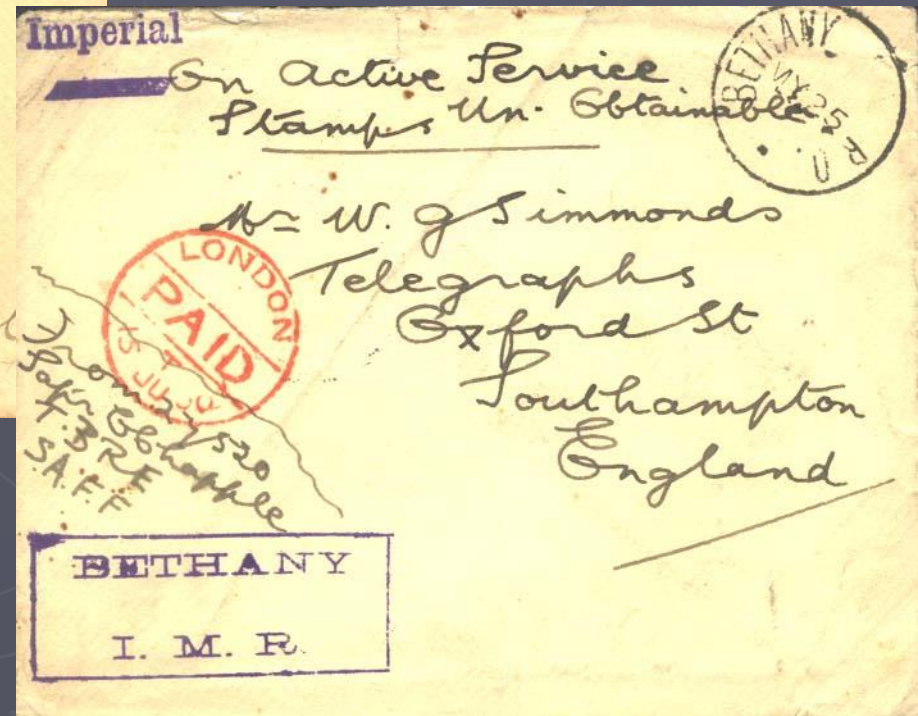 Imperial
On Active Service
Stamps Un. Obtainable
BETHANY
MY 25
R.O.
Mr W. G Simmonds
Telegraphs
Oxford St
Southampton
England
LONDON
PAID
15 JU 00
From 27520
Sapr C Chapple
T.B R E
S.A.F.F
BETHANY
I. M. R.